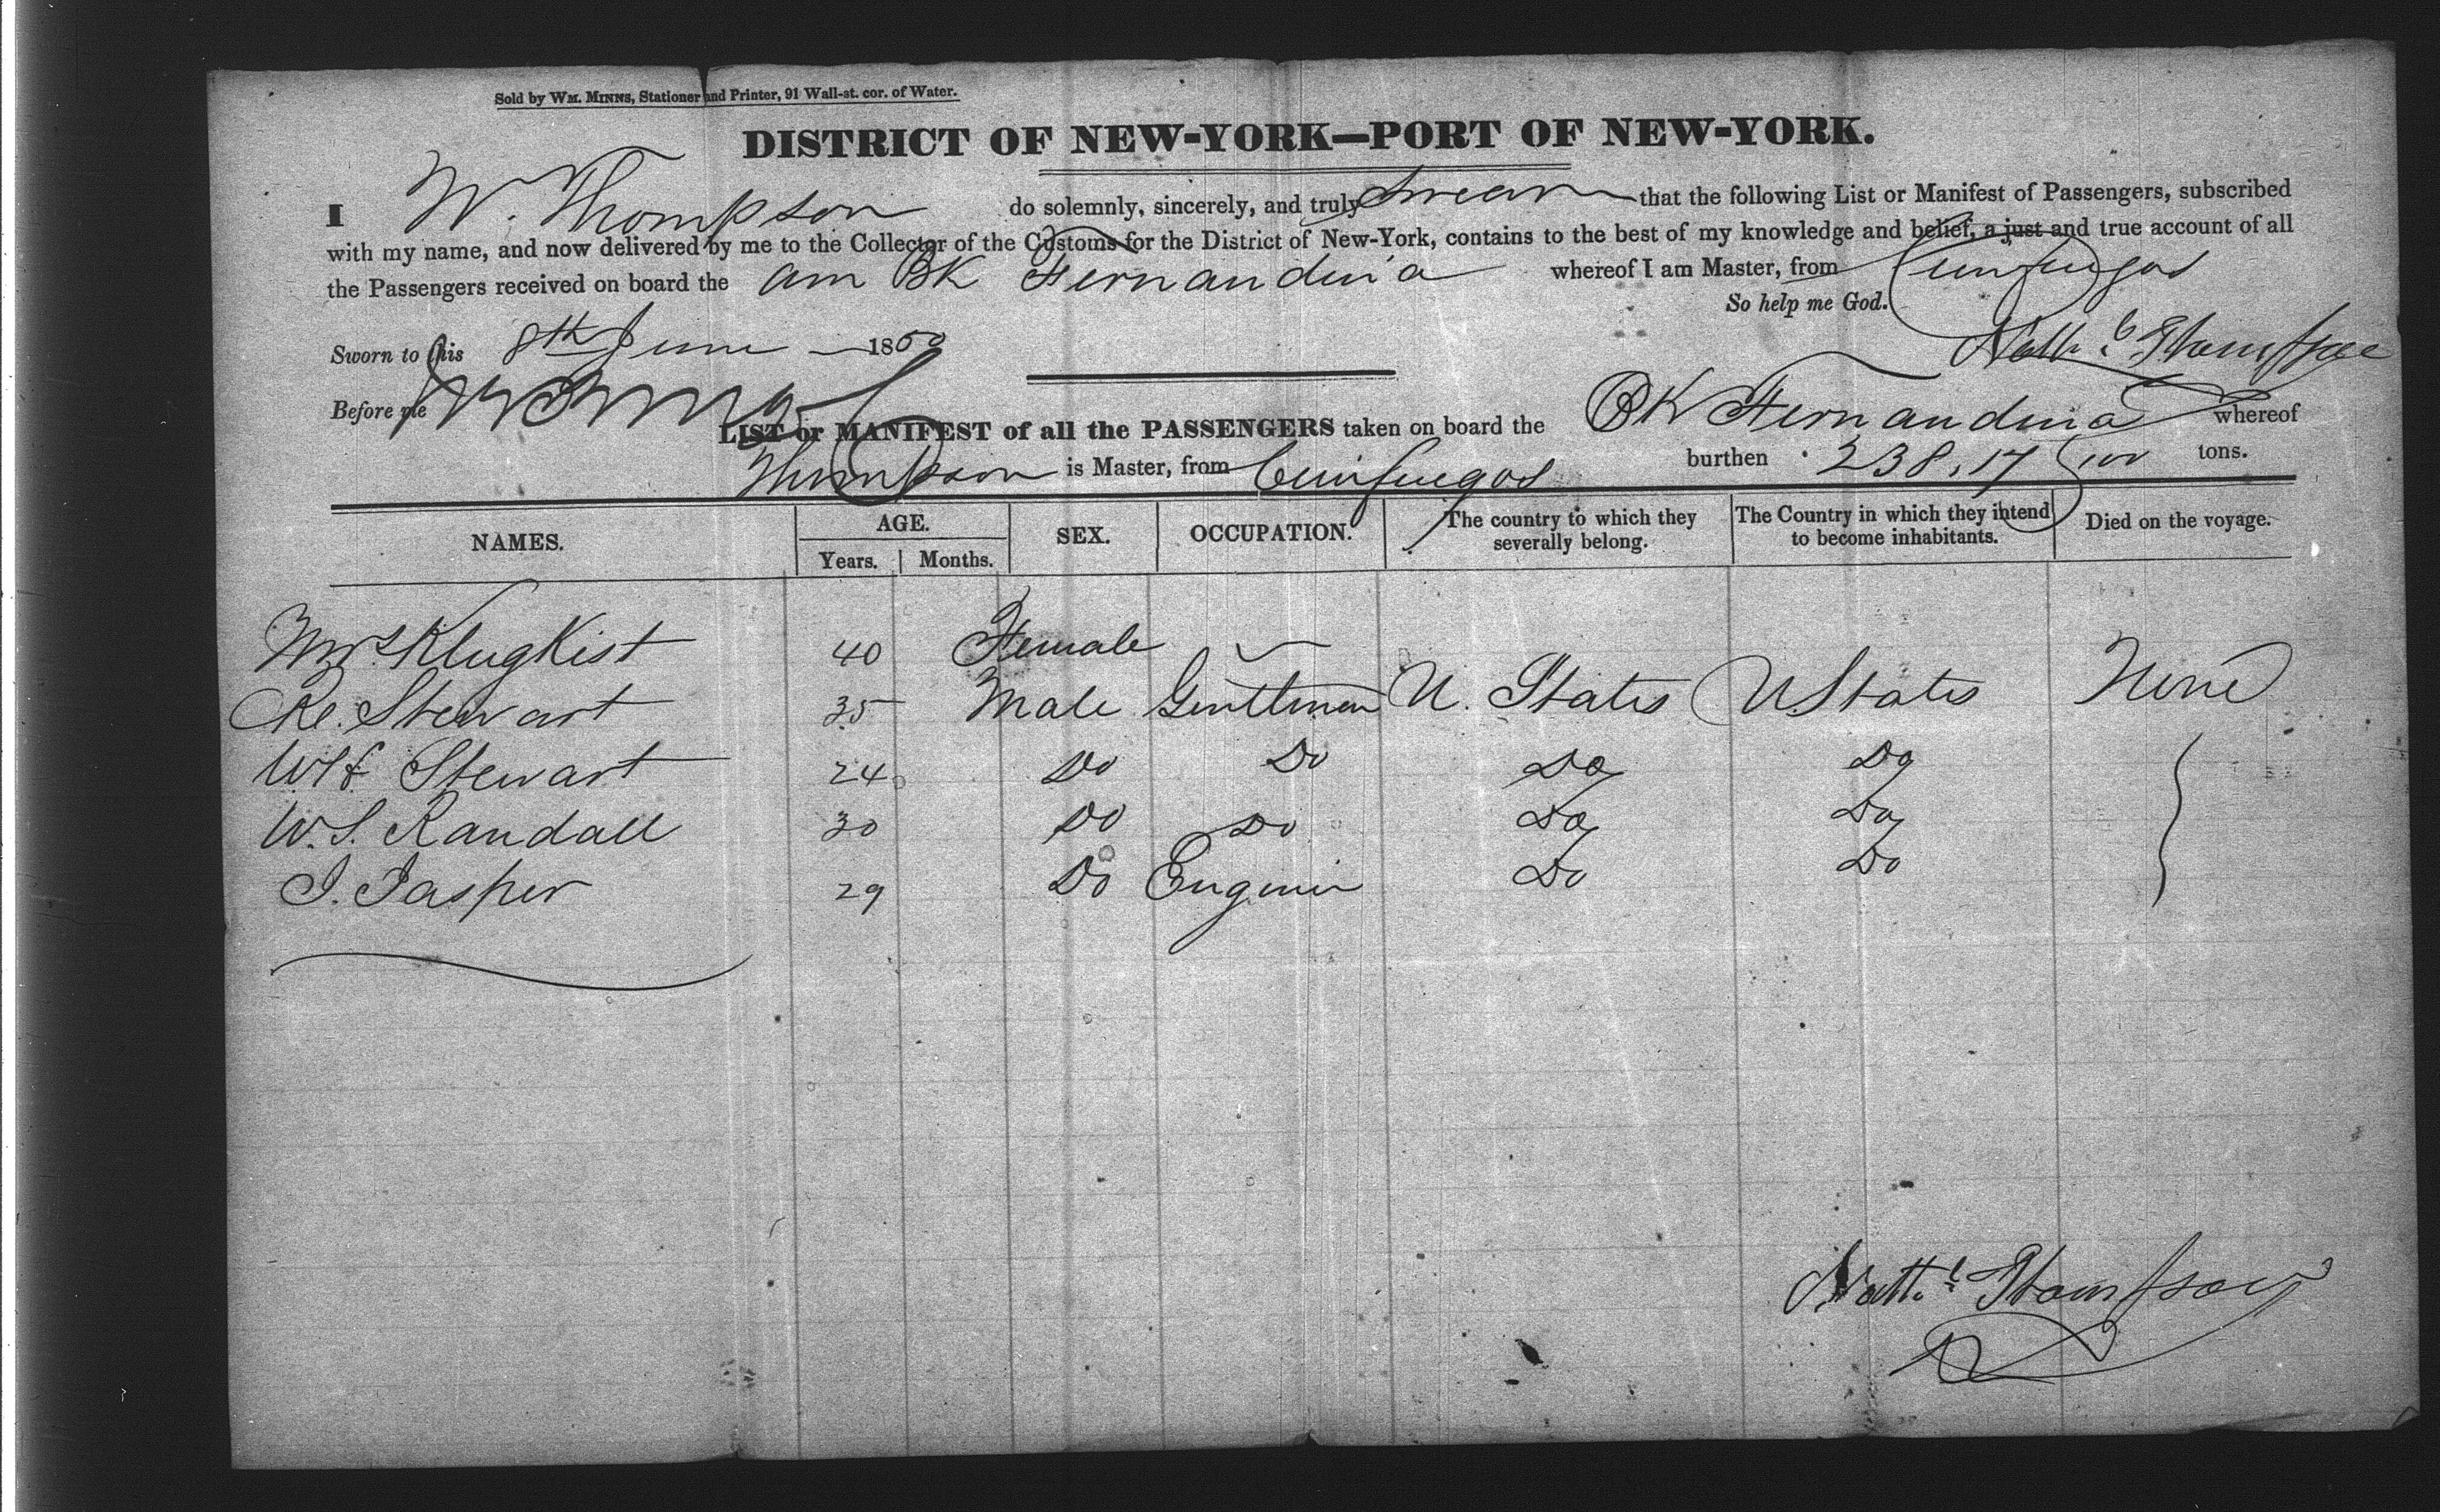 Sold by WM. MINNS, Stationer and Printer, 91 Wall-st. cor. of Water.
DISTRICT OF NEW-YORK—PORT OF NEW-YORK.
I W. Thompson do solemnly, sincerely, and truly Swear that the following List or Manifest of Passengers, subscribed
with my name, and now delivered by me to the Collector of the Customs for the District of New-York, contains to the best of my knowledge and belief, a just and true account of all
the Passengers received on board the Am BK Fernandina whereof I am Master, from Cienfuegos
So help me God.
Sworn to this 8th June 1850 Nathl Thompson
Before me
LIST or MANIFEST of all the PASSENGERS taken on board the BK Fernandina whereof
Thompson is Master, from Cienfuegos burthen 238.17/100 tons.
NAMES. AGE. Years. Months. SEX. OCCUPATION. The country to which they severally belong. The Country in which they intend to become inhabitants. Died on the voyage.
Mrs KlugKist 40 Female
Stewart 35 Male Gentleman U. States U States None
WH Stewart 24 Do Do Do Do
W.S. Randall 30 Do Do Do Do
J. Jasper 29 Do Engineer Do Do
Nathl Thompson